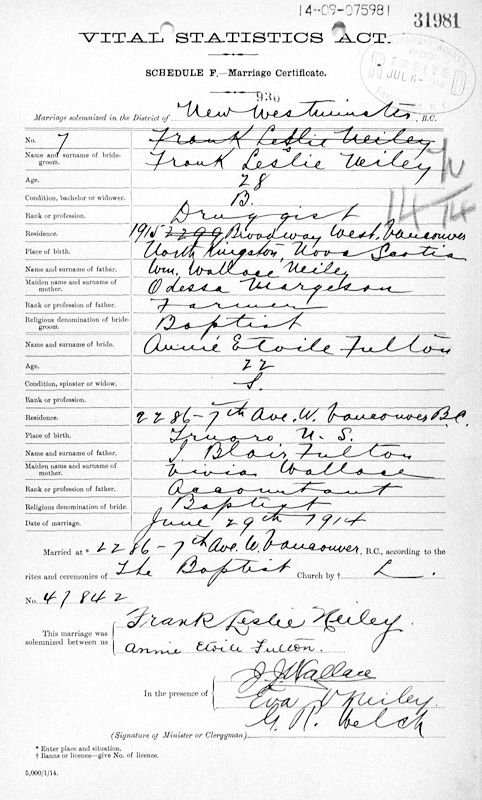 14-09-075981
31981
VITAL STATISTICS ACT.
SCHEDULE F.—Marriage Certificate.
930
Marriage solemnized in the District of New Westminster, B.C.
No. 7 Frank Leslie Neiley
Name and surname of bridegroom. Frank Leslie Neiley
Age. 28
Condition, bachelor or widower. B.
Rank or profession. Druggist
Residence. 1915 2299 Broadway West, Vancouver
Place of birth. North Kingston, Nova Scotia
Name and surname of father. Wm. Wallace Neiley
Maiden name and surname of mother. Odessa Margeson
Rank or profession of father. Farmer
Religious denomination of bridegroom. Baptist
Name and surname of bride. Annie Etoile Fulton
Age. 22
Condition, spinster or widow. S.
Rank or profession.
Residence. 2286-7th Ave. W. Vancouver B.C.
Place of birth. Truro N. S.
Name and surname of father. J. Blair Fulton
Maiden name and surname of mother. Vivia Wallace
Rank or profession of father. Accountant
Religious denomination of bride. Baptist
Date of marriage. June 29th 1914
Married at * 2286-7th Ave. W Vancouver, B.C., according to the
rites and ceremonies of The Baptist Church by † L.
No. 47842
This marriage was solemnized between us
Frank Leslie Neiley.
Annie Etoile Fulton.
In the presence of
J. J. Wallace
Eva V Neiley.
G. R. Welch
(Signature of Minister or Clergyman)
* Enter place and situation.
† Banns or licence—give No. of licence.
5,000/1/14.